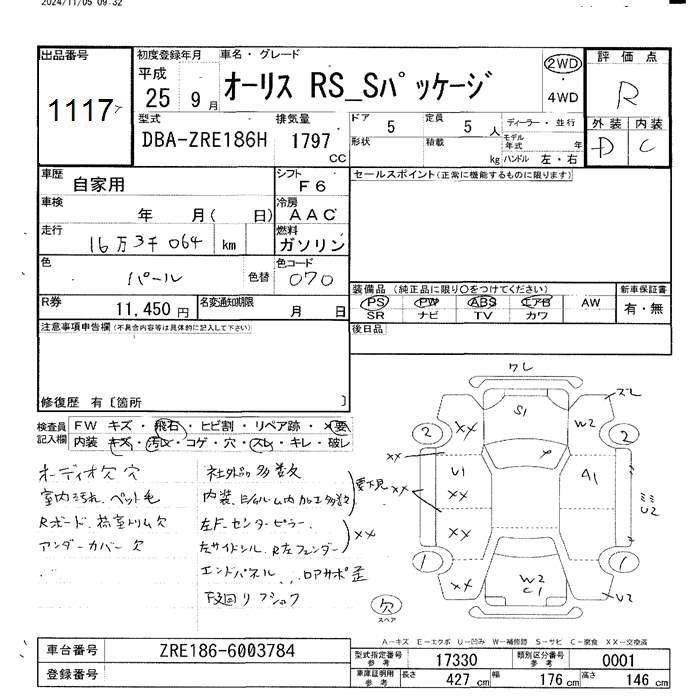 2024/11/05 09:32
出品番号 1117
初度登録年月 平成 25 9 月
車名・グレード オーリス RS_Sパッケージ
2WD
4WD
評価点 R
外装 内装
D C
型式 DBA-ZRE186H
排気量 1797 CC
ドア 5
定員 5 人
ディーラー・並行
形状
積載 kg
モデル年式 年
ハンドル 左・右
車歴 自家用
シフト F6
車検 年 月( 日)
冷房 AAC
走行 16万3千064 km
燃料 ガソリン
色 パール 色替
色コード 070
R券 11,450 円
名変通知期限 月 日
セールスポイント(正常に機能するものに限ります)
装備品 (純正品に限り○をつけてください)
PS PW ABS エアB AW
SR ナビ TV カワ
新車保証書 有・無
後日品
注意事項申告欄 (不具合内容等は具体的に記入して下さい)
修復歴 有〔箇所 〕
検査員記入欄
FW キズ・飛石・ヒビ割・リペア跡・×要
内装 キズ・汚レ・コゲ・穴・スレ・キレ・破レ
オーディオ欠 穴
室内汚れ、ペット毛
Rボード、荷室トリム欠
アンダーカバー欠
社外品多数
内装、
要下見
左F-センターピラー
左サイドシル、R左フェンダー
××
エンドパネル
下回り
ワレ
スレ
S1
××
W2
2
2
××
U1
A1
××
××
U2
××
1
1
××
W2
C1
U2
欠
スペア
A-キズ E-エクボ U-凹み W-補修跡 S-サビ C-腐食 XX-交換済
車台番号 ZRE186-6003784
登録番号
型式指定番号 参考 17330
類別区分番号 参考 0001
車庫証明用 参考 長さ 427 cm 幅 176 cm 高さ 146 cm